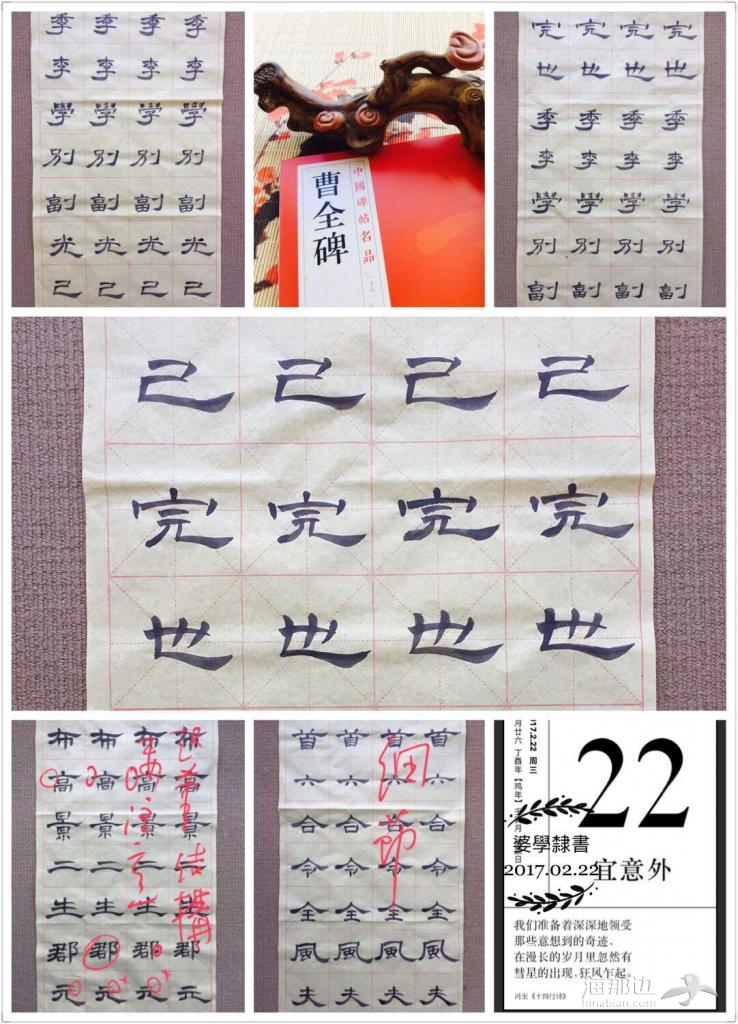 季 季 季 季
李 李 李 李
學 學 學 學
别 别 别 别
副 副 副 副
光 光 光 光
己 己 己 己
中國碑帖名品
曹全碑
完 完 完 完
也 也 也 也
季 季 季 季
李 李 李 李
學 學 學 學
别 别 别 别
副 副 副 副
己 己 己 己
完 完 完 完
也 也 也 也
布 布 布 布
高 高 高 高
景 景 景 景
二 二 二 二
生 生 生 生
郡 郡 郡 郡
元 元 元 元
首 首 首 首
六 六 六 六
合 合 合 合
令 令 令 令
全 全 全 全
風 風 風 風
夫 夫 夫 夫
細節
17.2.22 周三
月廿六 丁酉年【鸡年】
22
婆學隸書
2017.02.22
宜意外
我们准备着深深地领受
那些意想到的奇迹，
在漫长的岁月里忽然有
彗星的出现，狂风乍起。
冯至《十四行诗》
海那边
hinabian.com